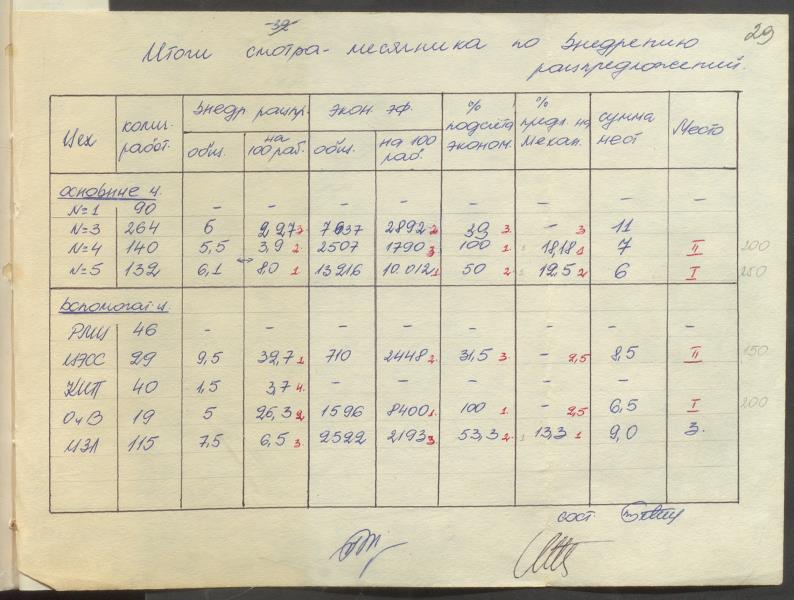 -32-
29
Итоги смотра-месячника по внедрению
рацпредложений.
Цех | колич. работ. | Внедр. рацпр. | Экон. эф. | % подсчета эконом. | % предл. на механ. | сумма мест | Место
общ. | на 100 раб. | общ. | на 100 раб.
основные ц.
№1 90 - - - - - - - -
№3 264 6 2,27 3 7637 2892 2 39 3 - 3 11
№4 140 5,5 3,9 2 2507 1790 3 100 1 18,18 1 7 II 200
№5 132 6,1 8,0 1 13216 10.012 1 50 2 12,5 2 6 I 250
Вспомогат. ц.
РМЦ 46 - - - - - - - -
29 9,5 32,7 1 710 2448 2 31,5 3 - 2,5 8,5 II 150
КИП 40 1,5 3,7 4 - - - - -
ОиВ 19 5 26,3 2 1596 8400 1 100 1 - 2,5 6,5 I 200
ЦЗЛ 115 7,5 6,5 3 2522 2193 3 53,3 2 13,3 1 9,0 3.
сост.